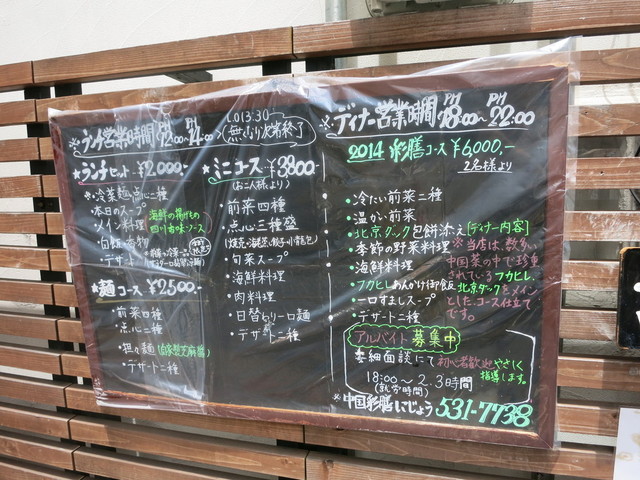 ※ランチ営業時間 PM 12:00〜 PM 14:00
L.O13:30〜
無くなり次第終了
★ランチセット ¥2,000-
・冷菜麺点心二種
・本日のスープ
・メイン料理
海鮮の揚げもの
四川古味ソース
・白飯・漬物
・デザート
★麺コース ¥2,500-
・前菜四種
・点心二種
・担々麺(自家製芝麻醤)
・デザート二種
★ミニコース ¥3800-
(お二人様より)
・前菜四種
・点心三種盛
・旬菜スープ
・海鮮料理
・肉料理
・日替もり一口麺
・デザート二種
※ディナー営業時間 PM 18:00〜 PM 22:00
2014 彩膳コース ¥6,000-
2名様より
・冷たい前菜二種
・温かい前菜
・北京ダック包餅添え
・季節の野菜料理
・海鮮料理
・フカヒレあんかけ御飯
・一口すましスープ
・デザート二種
[ディナー内容]
※当店は、数多い
中国菜の中で珍重
されているフカヒレ
北京ダックをメイン
とした、コース仕立て
です。
アルバイト募集中
委細面談にて 初心者歓迎 やさしく
指導します。
18:00〜2.3時間
(就労時間)
※中国彩膳にじょう 531-7738